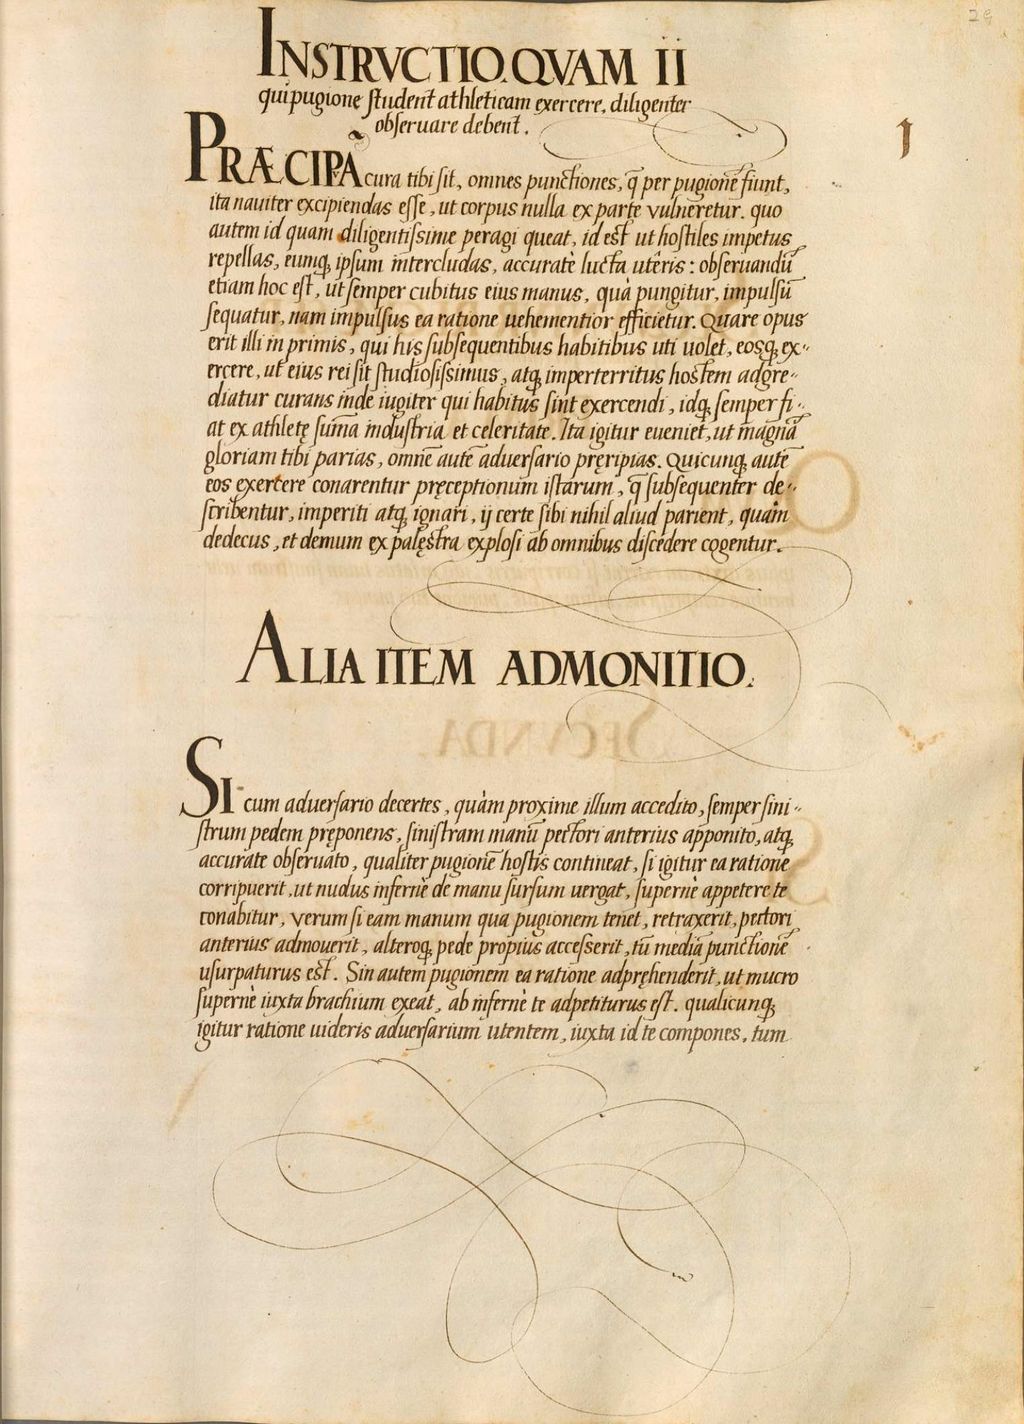 29
INSTRVCTIO.QVAM II
qui pugione ſtudent athleticam exercere, diligenter
obſeruare debent.
1
PRÆCIPÃ cura tibi ſit, omnes punctiones, q̃ per pugionē fiunt,
ita nauiter excipiendas eſſe, ut corpus nulla ex parte vulneretur. quo
autem id quam diligentiſsime peragi queat, id eſt ut hoſtiles impetus
repellas, eumq; ipſum intercludas, accuratè lucta utêris: obſeruandũ
etiam hoc eſt, ut ſemper cubitus eius manus, quà pungitur, impulſũ
ſequatur, nam impulſus ea ratione uehementior efficietur. Quare opus
erit illi in primis, qui his ſubſequentibus habitibus uti uolet, eosq; ex-
ercere, ut eius rei ſit ſtudioſiſsimus, atq; imperterritus hoſtem adgre-
diatur curans inde iugiter qui habitus ſint exercendi, idq; ſemper fi-
at ex athletę ſũma induſtria et celeritate. Ita igitur eueniet, ut magnã
gloriam tibi parias, omnē autē aduerſario pręripias. Quicunq; autē
eos exercere conarentur pręceptionum iſtarum, q̃ ſubſequenter de-
ſcribentur, imperiti atq; ignari, ij certe ſibi nihil aliud parient, quàm
dedecus, et demum ex palęſtra exploſi ab omnibus diſcedere cogentur.
ALIA ITEM ADMONITIO.
SI cum aduerſario decertes, quàm proxime illum accedito, ſemper ſini-
ſtrum pedem pręponens, ſiniſtram manũ pectori anterius apponito, atq;
accurate obſeruato, qualiter pugionē hoſtis contineat, ſi igitur ea ratione
corripuerit, ut nudus infernè de manu ſurſum uergat, ſupernè appetere te
conabitur, verum ſi eam manum qua pugionem tenet, retraxerit, pectori
anterius admouerit, alteroq; pede propius acceſſerit, tũ media punctionē
uſurpaturus eſt. Sin autem pugionem ea ratione adpręhenderit, ut mucro
ſupernè iuxta brachium exeat, ab infernè te adpetiturus eſt. qualicunq;
igitur ratione uideris aduerſarium utentem, iuxta id te compones, tum